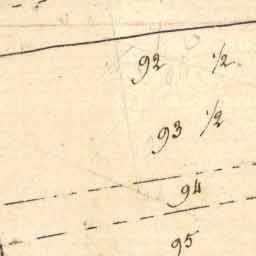 92 1/2
93 1/2
94
95